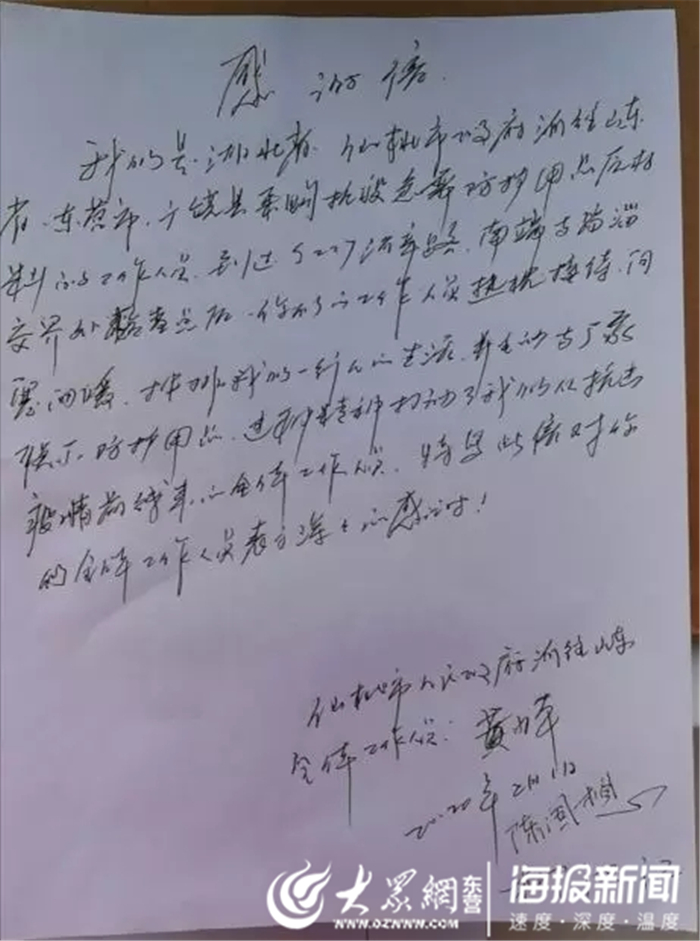 感谢信
我们是湖北省、仙桃市政府派往山东
省、东营市、广饶县采购抗疫急需防护用品原材
料的工作人员,到达 路、南端与临淄
交界处检查点后,你们的工作人员热忱接待,问
寒问暖,安排我们一行人的生活,并主动与厂家
联系防护用品,这种精神打动了我们从抗击
疫情前线来的全体工作人员,特写此信对你
们全体工作人员表示深深的感谢!
仙桃市人民政府派往山东
全体工作人员:黄
2020年2月1日
陈国
大众网 东营 海报新闻
WWW.DZWWW.COM 速度·深度·温度